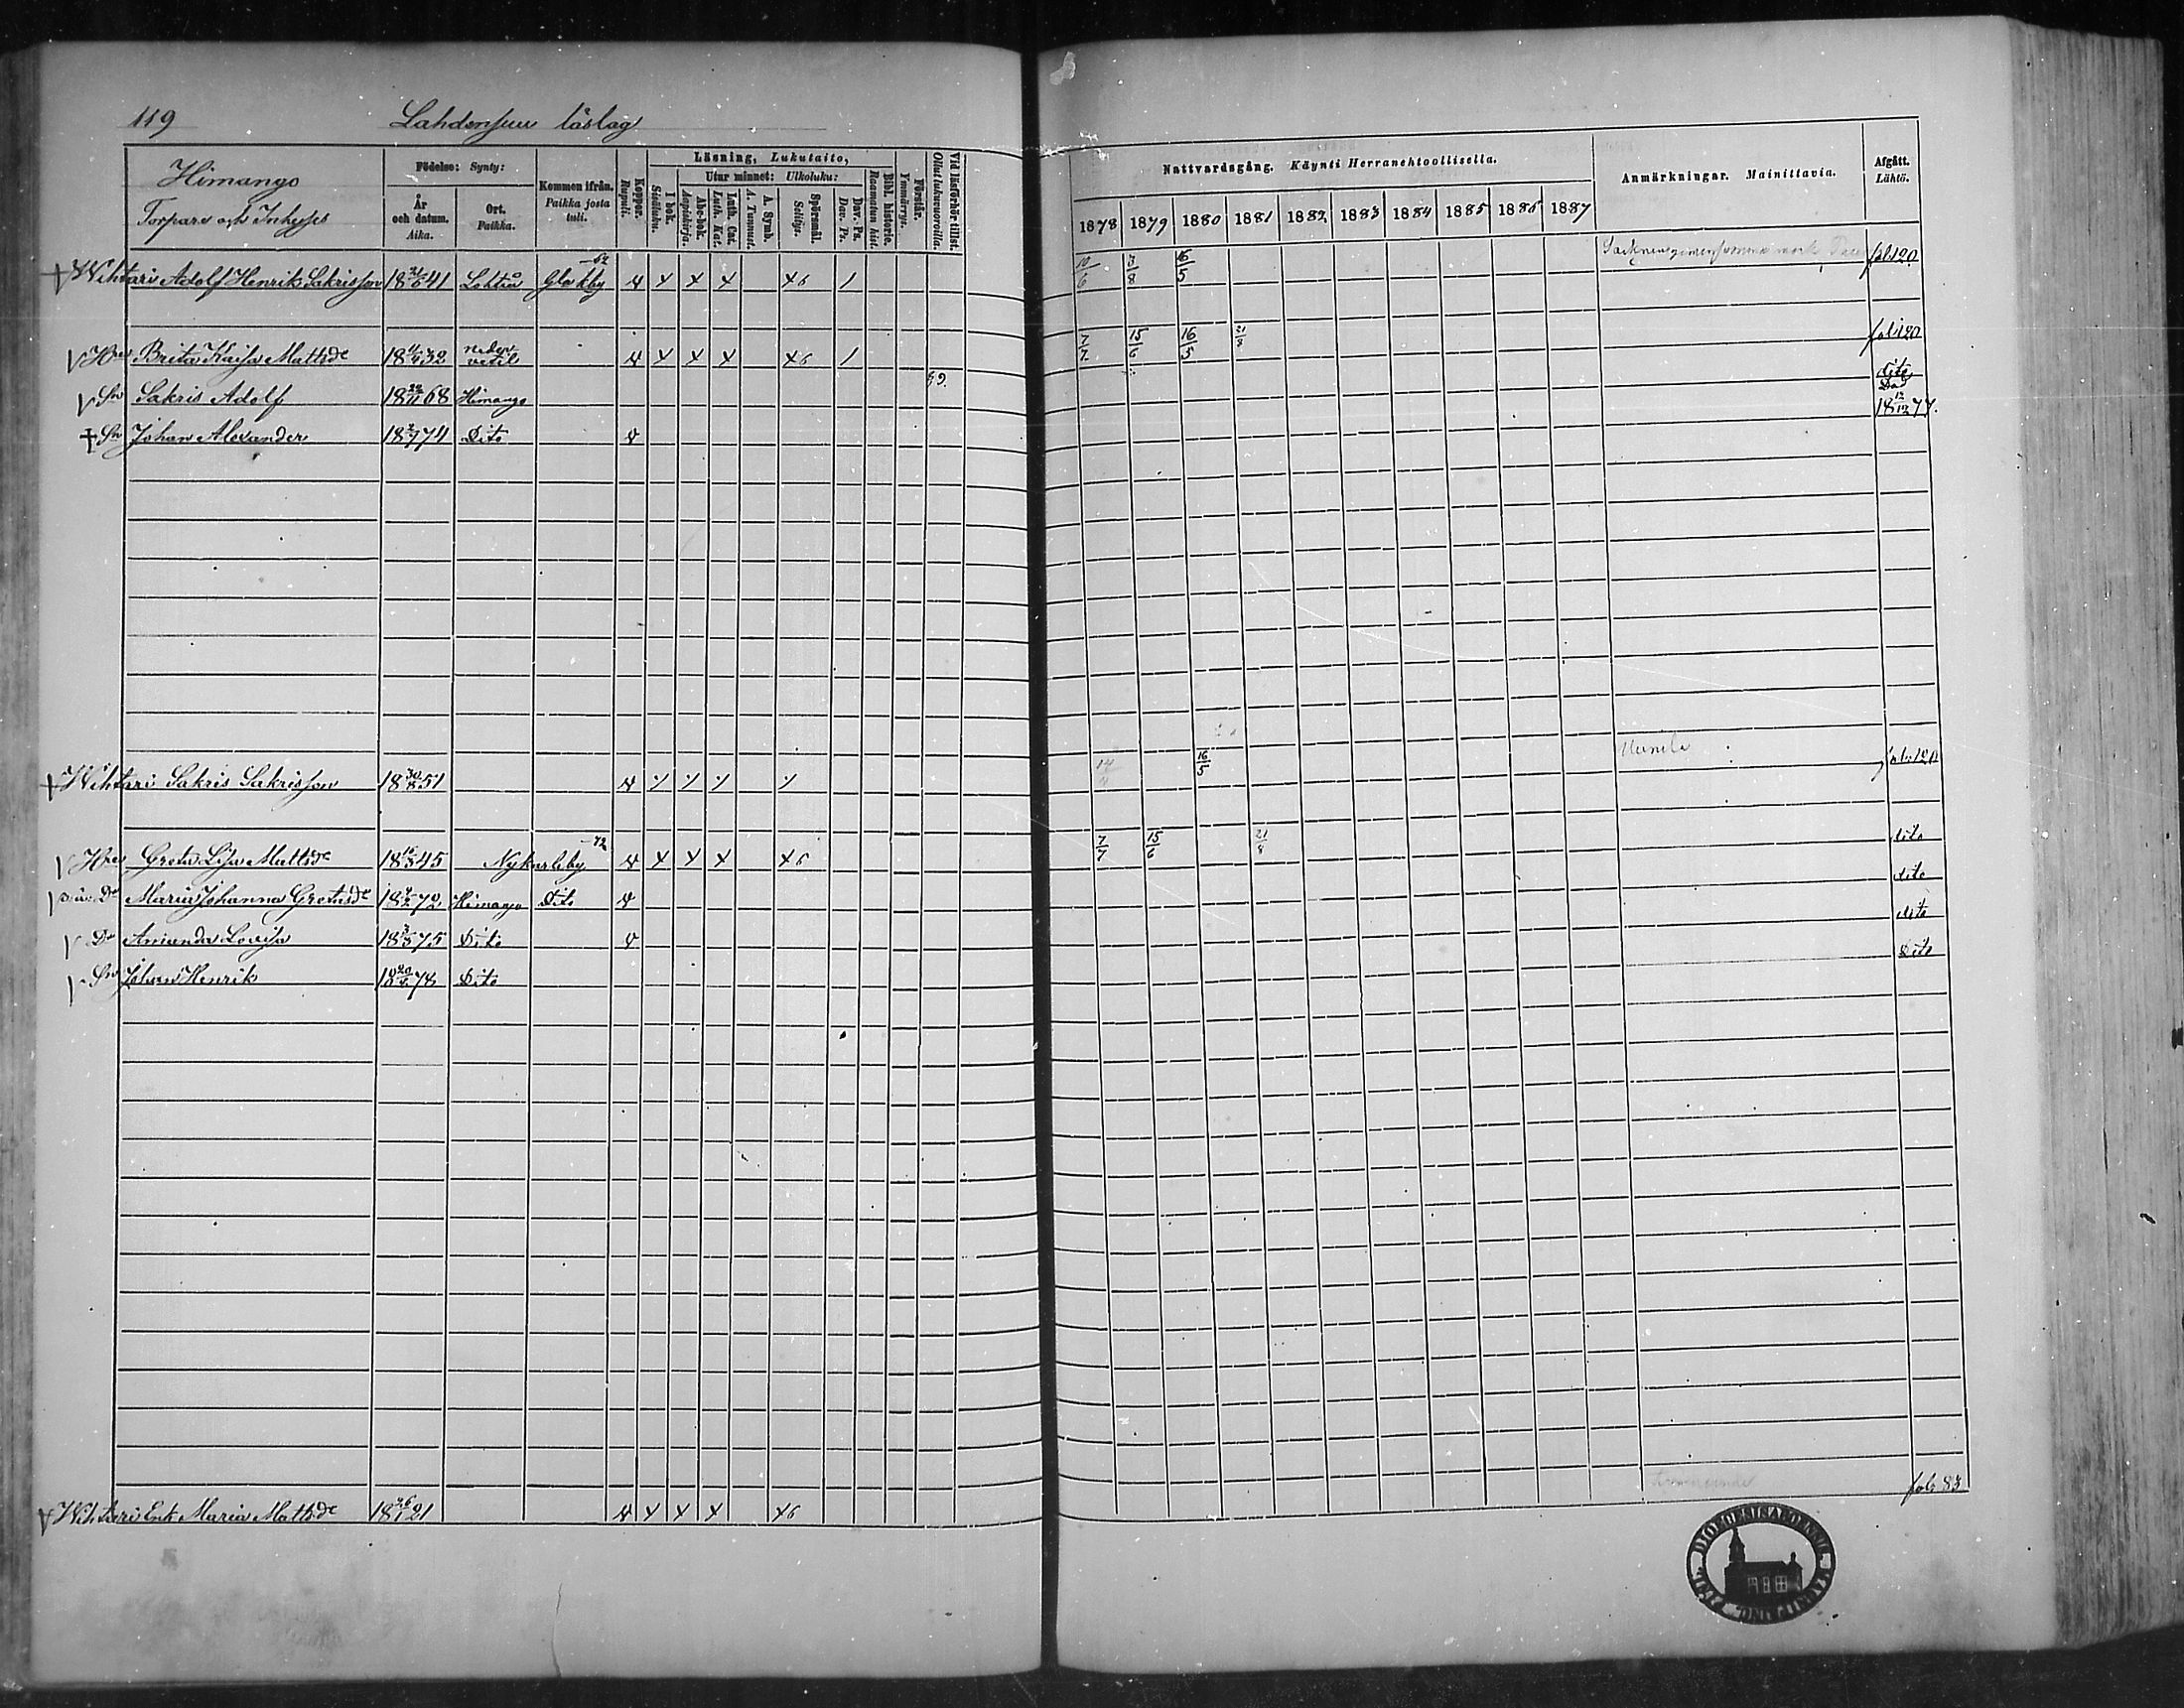 119 Lahdensuu läslag
Himango
Torpare och Inhyses
Födelse: Synty:
År och datum. Aika.
Ort. Paikka.
Kommen ifrån. Paikka josta tuli.
Koppor. Rupuli.
Läsning, Lukutaito,
I bok. Sisäluku.
Utur minnet: Ulkoluku:
Abc-bok. Aapiskirja.
Luth. Cat. Luth. Kat.
A. Symb. A. Tunnust.
Spörsmål. Selitys.
Dav. Ps. Dav. Ps.
Bibl. historie. Raamatun hist.
Förstår. Ymmärrys.
Vid läsförhör tillst. Ollut lukuvuoroilla.
Nattvardsgång. Käynti Herranehtoollisella.
1878 1879 1880 1881 1882 1883 1884 1885 1886 1887
Anmärkningar. Mainittavia.
Afgått. Lähtö.
Wihtari Adolf Henrik Sakrisson 18 21/6 41 Lohteå Glakby 10/6 3/8 16/5 fol 120
Hu Brita Kaisa Mattsdr 18 11/4 32 neder vetil 7/7 15/6 16/5 21/8 fol 120
Sn Sakris Adolf 18 22/11 68 Himango dito
Sn Johan Alexander 18 2/7 74 Dito Död 18 12/12 77.
Wihtari Sakris Sakrisson 18 30/8 51 16/5 120
Hu Greta Lisa Mattsdr 18 16/3 45 Nykarleby -72 7/7 15/6 21/8 dito
Dr Maria Johanna Gretasdr 18 72 Himango Dito dito
Dr Amanda Lovisa 18 75 Dito dito
Sn Johan Henrik 18 20 78 Dito Dito
Wihtari Enk. Maria Mattsdr 18 26/1 21 fol 83